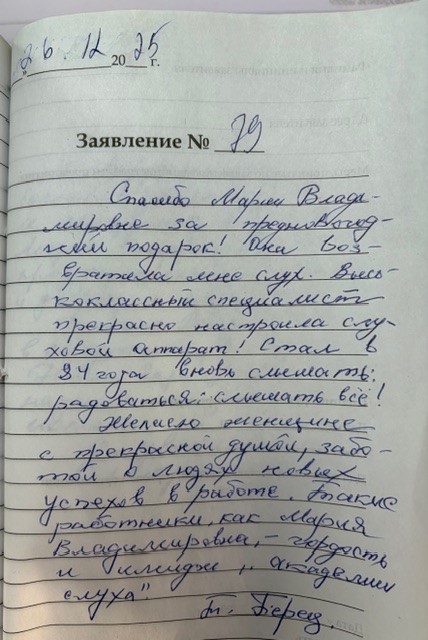 26.12 2025 г.
Заявление № 79
Спасибо Марии Влади-
мировне за предновогод-
ний подарок! Она воз-
вратила мне слух. Высо-
коклассный специалист
прекрасно настроила слу-
ховой аппарат! Стал в
84 года вновь слышать:
радоваться: слышать всё!
Желаю женщине
с прекрасной душой, забо-
той о людях новых
успехов в работе. Такие
работники, как Мария
Владимировна, – гордость
и имидж „академии
слуха“.